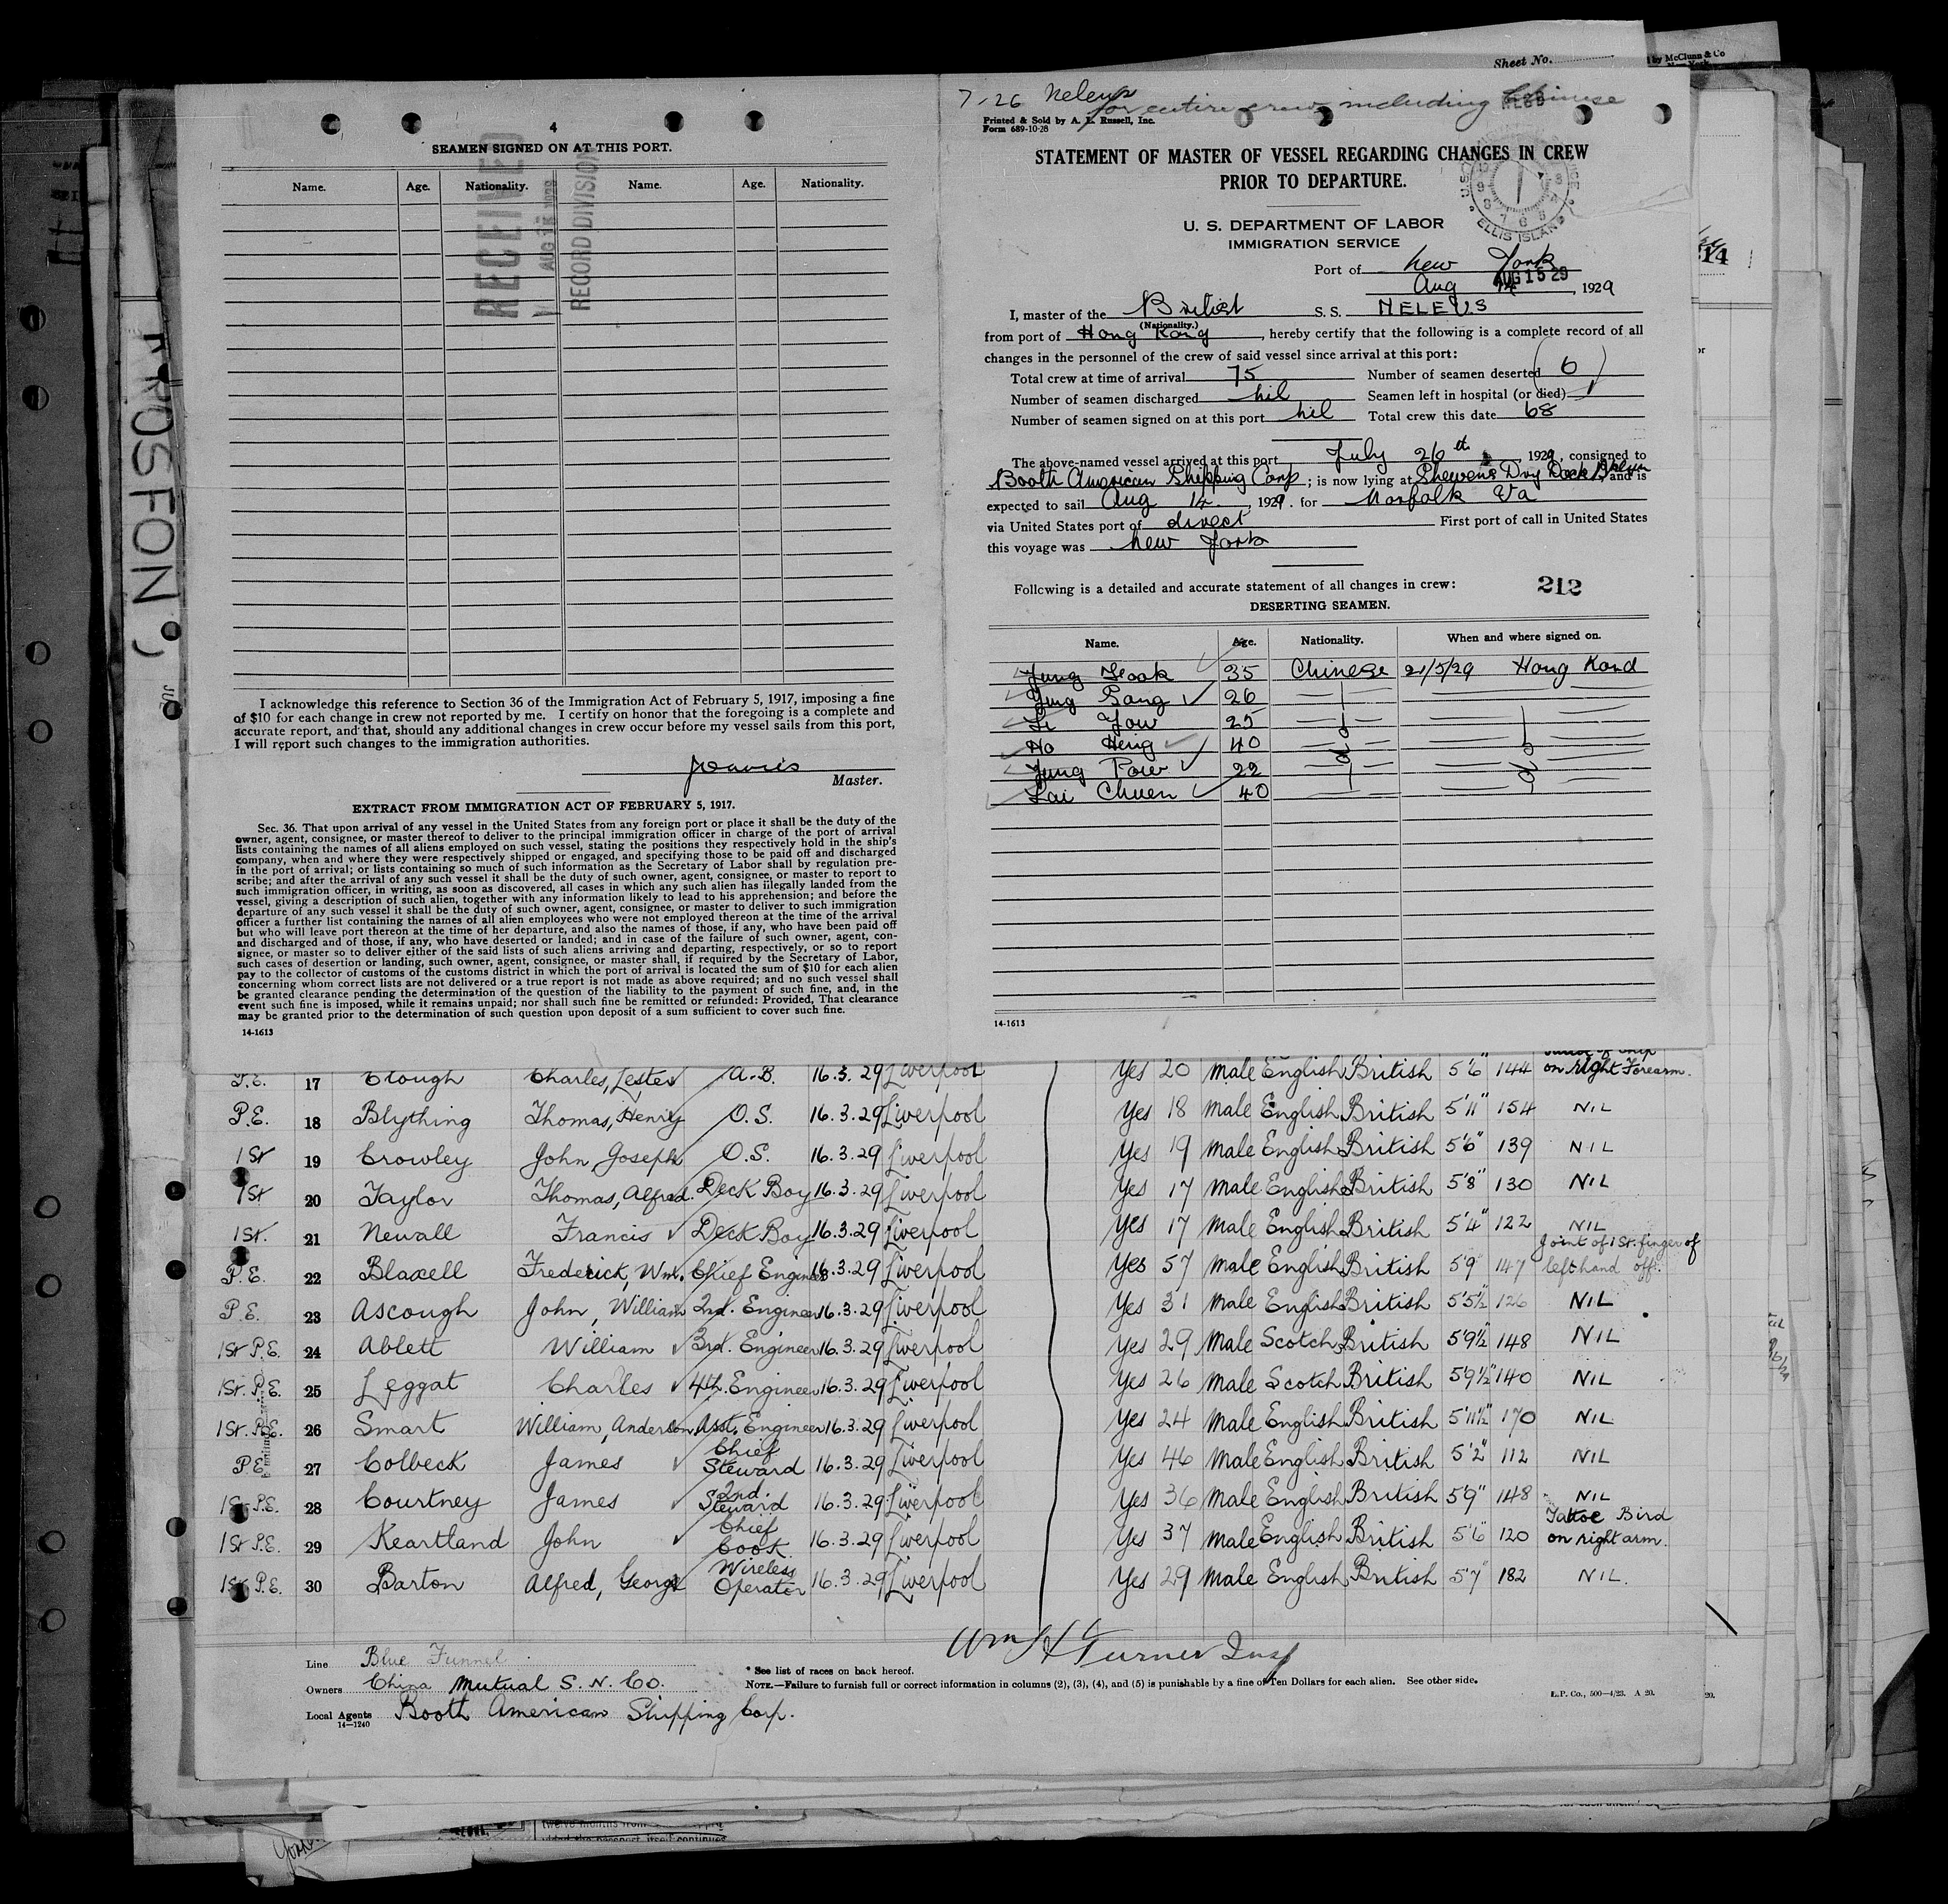 Sheet No.
by McClunn & Co
4
SEAMEN SIGNED ON AT THIS PORT.
Name. Age. Nationality. Name. Age. Nationality.
RECEIVED
AUG 15 1929
RECORD DIVISION
I acknowledge this reference to Section 36 of the Immigration Act of February 5, 1917, imposing a fine
of $10 for each change in crew not reported by me. I certify on honor that the foregoing is a complete and
accurate report, and that, should any additional changes in crew occur before my vessel sails from this port,
I will report such changes to the immigration authorities.
Master.
EXTRACT FROM IMMIGRATION ACT OF FEBRUARY 5, 1917.
Sec. 36. That upon arrival of any vessel in the United States from any foreign port or place it shall be the duty of the
owner, agent, consignee, or master thereof to deliver to the principal immigration officer in charge of the port of arrival
lists containing the names of all aliens employed on such vessel, stating the positions they respectively hold in the ship's
company, when and where they were respectively shipped or engaged, and specifying those to be paid off and discharged
in the port of arrival; or lists containing so much of such information as the Secretary of Labor shall by regulation pre-
scribe; and after the arrival of any such vessel it shall be the duty of such owner, agent, consignee, or master to report to
such immigration officer, in writing, as soon as discovered, all cases in which any such alien has illegally landed from the
vessel, giving a description of such alien, together with any information likely to lead to his apprehension; and before the
departure of any such vessel it shall be the duty of such owner, agent, consignee, or master to deliver to such immigration
officer a further list containing the names of all alien employees who were not employed thereon at the time of the arrival
but who will leave port thereon at the time of her departure, and also the names of those, if any, who have been paid off
and discharged and of those, if any, who have deserted or landed; and in case of the failure of such owner, agent, con-
signee, or master so to deliver either of the said lists of such aliens arriving and departing, respectively, or so to report
such cases of desertion or landing, such owner, agent, consignee, or master shall, if required by the Secretary of Labor,
pay to the collector of customs of the customs district in which the port of arrival is located the sum of $10 for each alien
concerning whom correct lists are not delivered or a true report is not made as above required; and no such vessel shall
be granted clearance pending the determination of the question of the liability to the payment of such fine, and, in the
event such fine is imposed, while it remains unpaid; nor shall such fine be remitted or refunded: Provided, That clearance
may be granted prior to the determination of such question upon deposit of a sum sufficient to cover such fine.
14-1613
7-26 Neleus
for entire crew including Chinese
Printed & Sold by A. L. Russell, Inc.
Form 689-10-28
STATEMENT OF MASTER OF VESSEL REGARDING CHANGES IN CREW
PRIOR TO DEPARTURE.
U. S. DEPARTMENT OF LABOR
IMMIGRATION SERVICE
ELLIS ISLAND
Port of New York
AUG 15 29
Aug 14, 1929
I, master of the British S. S. NELEUS
(Nationality.)
from port of Hong Kong, hereby certify that the following is a complete record of all
changes in the personnel of the crew of said vessel since arrival at this port:
Total crew at time of arrival 75 Number of seamen deserted (6)
Number of seamen discharged nil Seamen left in hospital (or died) 1
Number of seamen signed on at this port nil Total crew this date 68
The above-named vessel arrived at this port July 26th, 1929, consigned to
Booth American Shipping Corp; is now lying at Shewens Dry Dock Bklyn, and is
expected to sail Aug 14, 1929. for Norfolk Va
via United States port of direct First port of call in United States
this voyage was New York
Following is a detailed and accurate statement of all changes in crew: 212
DESERTING SEAMEN.
Name. Age. Nationality. When and where signed on.
Jung Fook 35 Chinese 21/5/29 Hong Kond
Jung Sang 26
Li Yow 25
Ho Heng 40 do do
Jung Pow 22
Lai Chuen 40
14-1613
P.E. 17 Clough Charles, Lester A.B. 16.3.29 Liverpool Yes 20 Male English British 5'6" 144 on right Forearm.
P.E. 18 Blything Thomas, Henry O.S. 16.3.29 Liverpool Yes 18 Male English British 5'11" 154 NIL
1st 19 Crowley John Joseph O.S. 16.3.29 Liverpool Yes 19 Male English British 5'6" 139 NIL
1st 20 Taylor Thomas, Alfred. Deck Boy 16.3.29 Liverpool Yes 17 Male English British 5'8" 130 NIL
1st. 21 Newall Francis Deck Boy 16.3.29 Liverpool Yes 17 Male English British 5'4" 122 NIL
P.E. 22 Blaxell Frederick, Wm. Chief Engineer 16.3.29 Liverpool Yes 57 Male English British 5'9" 147 Joint of 1st. finger of left hand off.
P.E. 23 Ascough John, William 2nd. Engineer 16.3.29 Liverpool Yes 31 Male English British 5'5½" 126 NIL
1st P.E. 24 Ablett William 3rd. Engineer 16.3.29 Liverpool Yes 29 Male Scotch British 5'9½" 148 NIL
1st. P.E. 25 Leggat Charles 4th. Engineer 16.3.29 Liverpool Yes 26 Male Scotch British 5'9½" 140 NIL
1st. P.E. 26 Smart William, Anderson Asst. Engineer 16.3.29 Liverpool Yes 24 Male English British 5'11½" 170 NIL
P.E. 27 Colbeck James Chief Steward 16.3.29 Liverpool Yes 46 Male English British 5'2" 112 NIL
1st P.E. 28 Courtney James 2nd. Steward 16.3.29 Liverpool Yes 36 Male English British 5'9" 148 NIL
1st P.E. 29 Keartland John Chief Cook 16.3.29 Liverpool Yes 37 Male English British 5'6" 120 Tattoe Bird on right arm.
1st P.E. 30 Barton Alfred, George Wireless Operator 16.3.29 Liverpool Yes 29 Male English British 5'7" 182 NIL.
Wm H Turner Insp
Line Blue Funnel
Owners China Mutual S. N. Co.
Local Agents Booth American Shipping Corp.
14-1240
* See list of races on back hereof.
NOTE.—Failure to furnish full or correct information in columns (2), (3), (4), and (5) is punishable by a fine of Ten Dollars for each alien. See other side.
L.P. Co., 500—4/23. A 20.